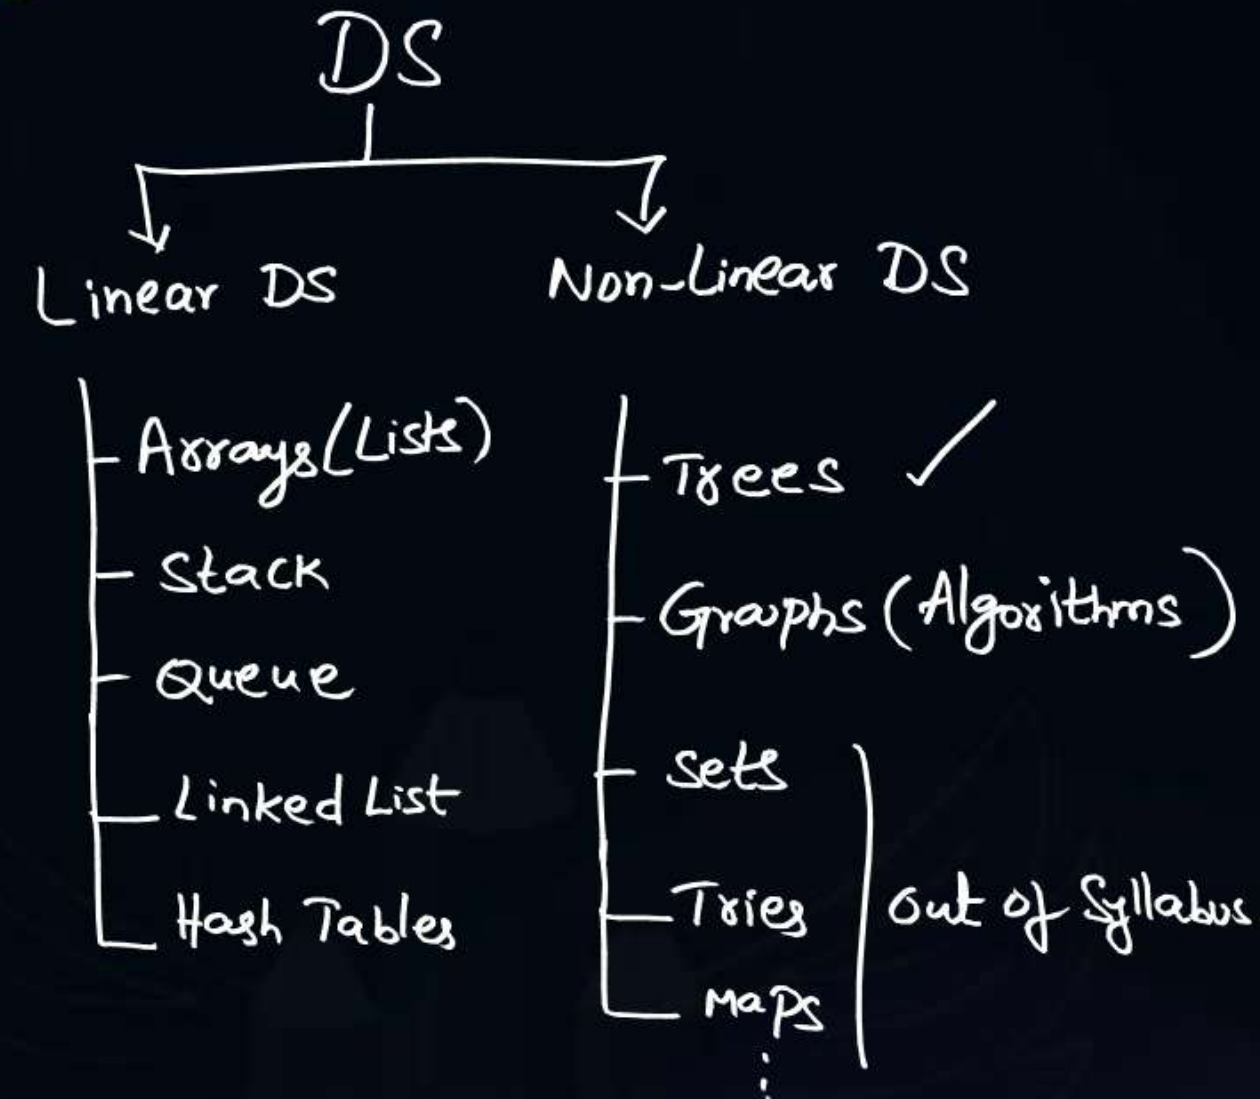 DS
Linear DS
Arrays(Lists)
Stack
Queue
Linked List
Hash Tables
Non-Linear DS
Trees
Graphs (Algorithms)
Sets
Tries
Maps
Out of Syllabus